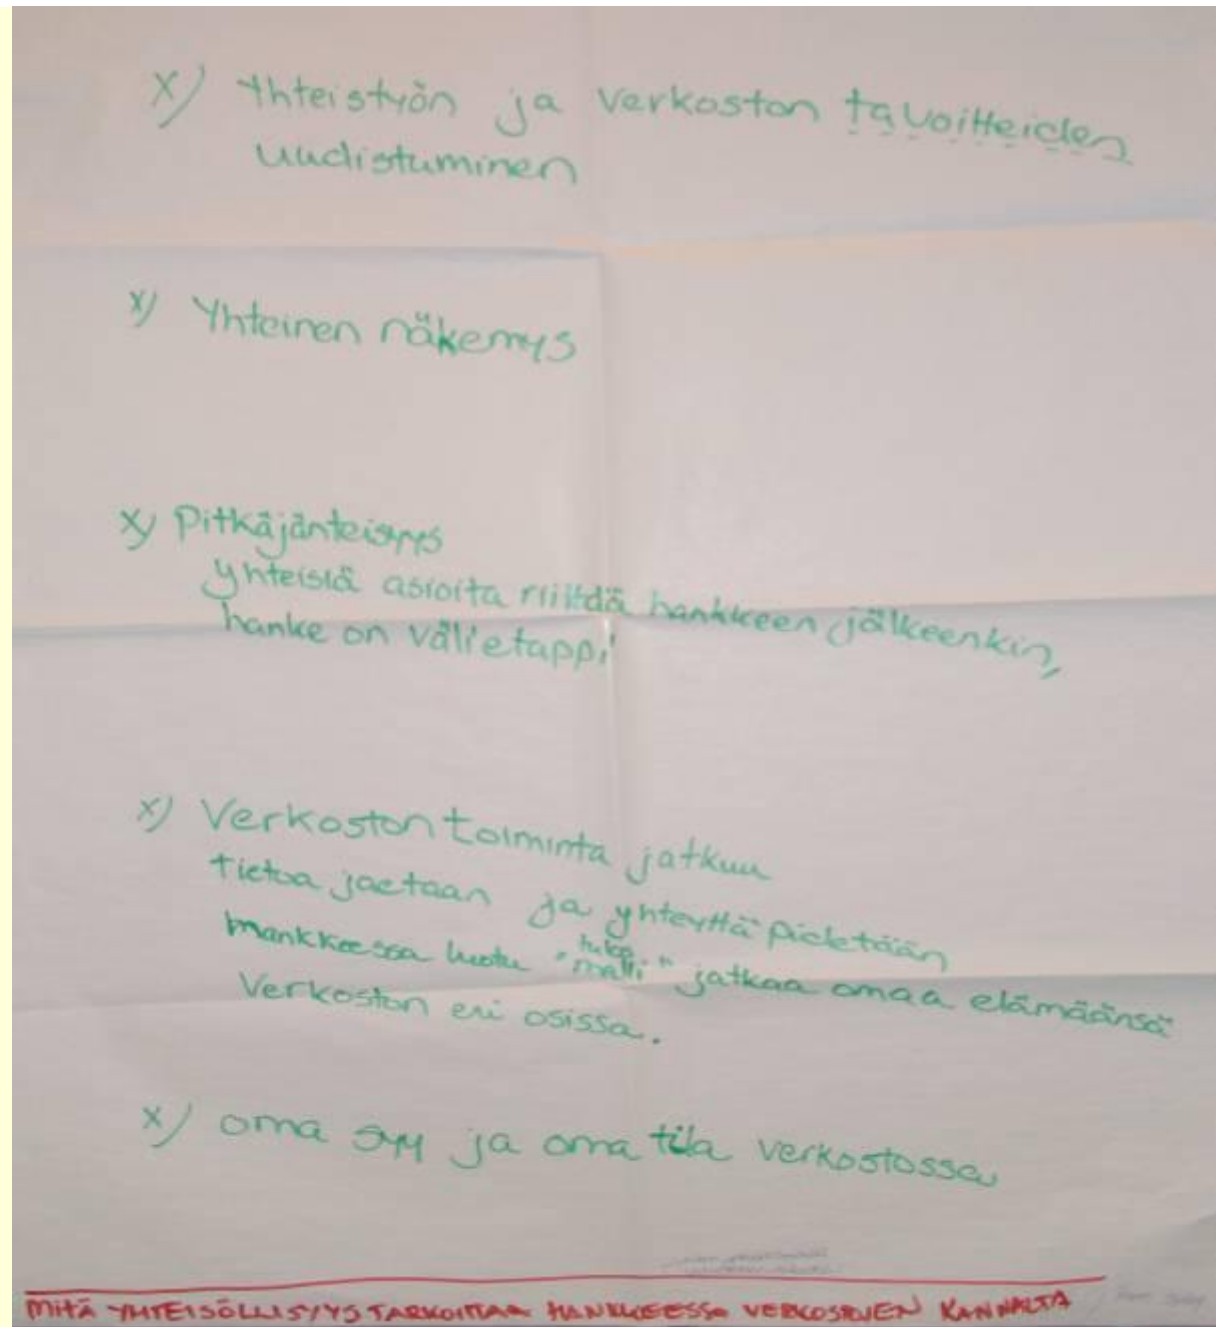 x) Yhteistyön ja verkoston tavoitteiden
uudistuminen
x) Yhteinen näkemys
x) Pitkäjänteisyys
yhteisiä asioita riittää hankkeen jälkeenkin,
hanke on välietappi!
x) Verkoston toiminta jatkuu
Tietoa jaetaan ja yhteyttä pidetään
Hankkeessa luotu "malli" jatkaa omaa elämäänsä
Verkoston eri osissa.
x) oma syy ja oma tila verkostossa
MITÄ YHTEISÖLLISYYS TARKOITTAA HANKKEESSA VERKOSTOJEN KANNALTA